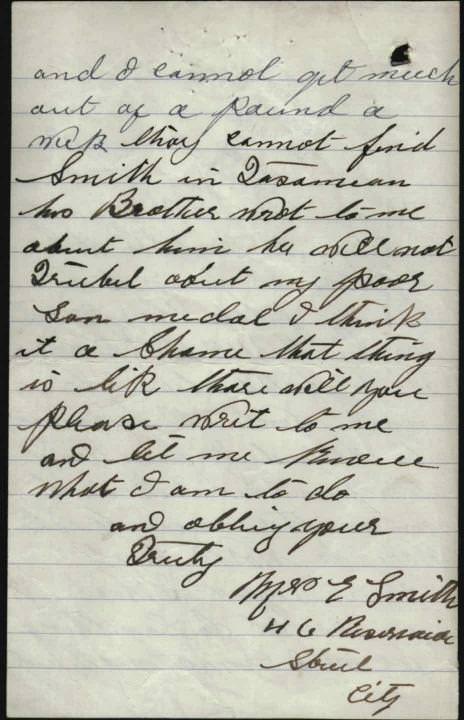 and I cannot get much
out of a Pound a
wek thay cannot find
Smith in Tasamean
his Brother wrot to me
about him he will not
Trubel about my poor
Son medal I think
it a Shame that thing
is lik thare will you
please writ to me
and let me know
what I am to do
and obblig your
Truly
Mrs E Smith
46
Street
City